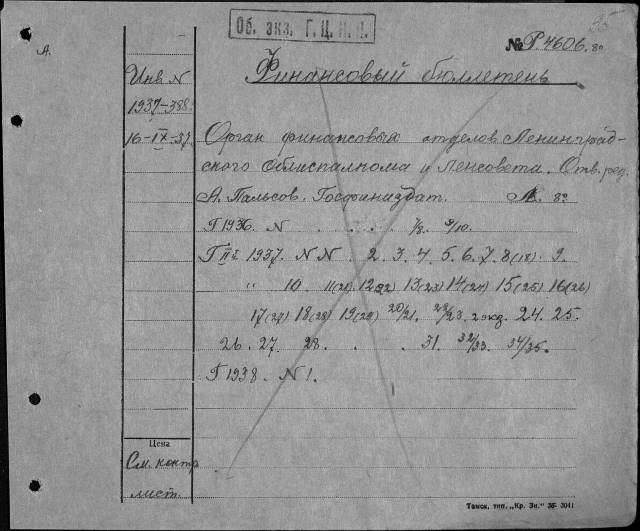 Об. экз. Г.Ц.К.П.
№ Р.4606. 8º
А.
Финансовый бюллетень
Инв N
1937-388.
16-IX-37.
Орган финансовых отделов Ленинград-
ского Облисполкома и Ленсовета. Отв. ред.
А. Пальсов. Госфиниздат. Л. 8º
Г 1936. N . . . . 7/8. 9/10.
Г II г. 1937. N N . 2. 3. 4. 5. 6. 7. 8(18). 9.
" 10. 11(21). 12(22) 13(23) 14(24) 15(25) 16(26)
17(27) 18(28) 19(29) 20/21. 22/23. 2 экз. 24. 25.
26. 27. 28. . . . 31. 32/33. 34/35.
Г 1938. N 1.
Цена
См. контр
лист.
Томск. тип. „Кр. Зн." 36- 3041